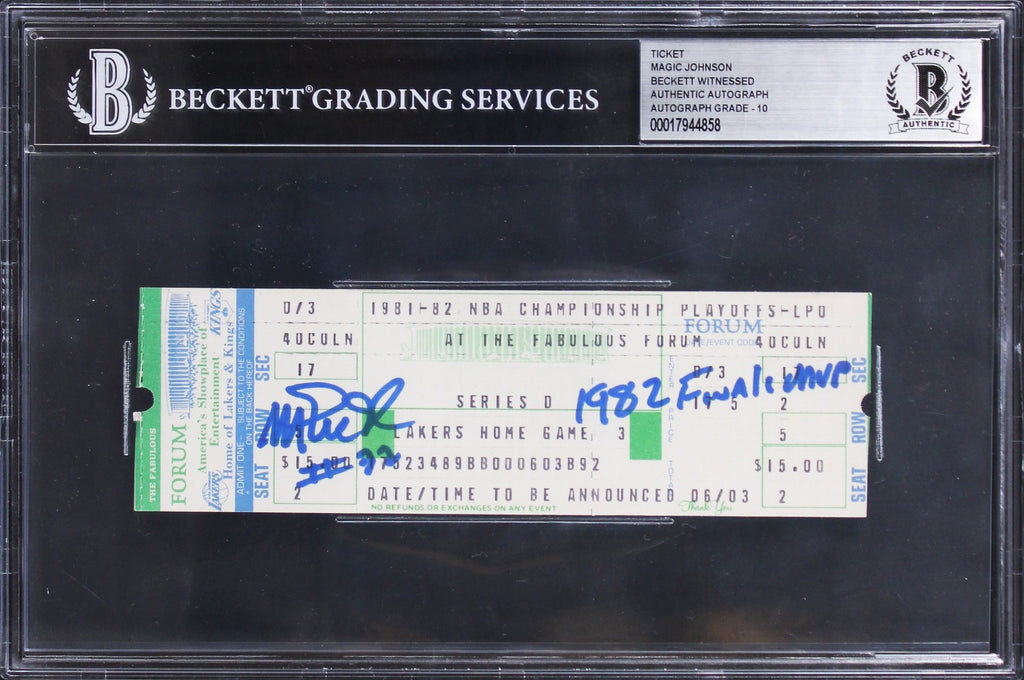 B
BECKETT® GRADING SERVICES
TICKET
MAGIC JOHNSON
BECKETT WITNESSED
AUTHENTIC AUTOGRAPH
AUTOGRAPH GRADE - 10
00017944858
BECKETT
B
AUTHENTIC
THE FABULOUS
FORUM
America's Showplace of
Entertainment
Home of Lakers & Kings
LAKERS
KINGS
ADMIT ONE - SUBJECT TO THE CONDITIONS
ON THE BACK HEREOF
SEC
ROW
SEAT
D/3
40COLN
17
$15.00
2
1981-82 NBA CHAMPIONSHIP PLAYOFFS-LPO
AT THE FABULOUS FORUM
SERIES D
LAKERS HOME GAME 3
DATE/TIME TO BE ANNOUNCED 06/03
NO REFUNDS OR EXCHANGES ON ANY EVENT
#32
1982 Finals MVP
FORUM
40COLN
D/3
17
2
5
$15.00
2
Thank You
SEC
ROW
SEAT